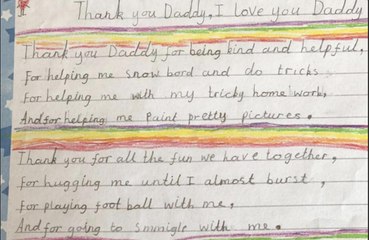 Thank you Daddy, I love you Daddy
Thank you Daddy for being kind and helpful,
For helping me snow bord and do tricks
For helping me with my tricky home work,
And for helping me Paint pretty pictures.
Thank you for all the fun we have together,
For hugging me until I almost burst,
For playing foot ball with me,
And for going to smmigle with me.